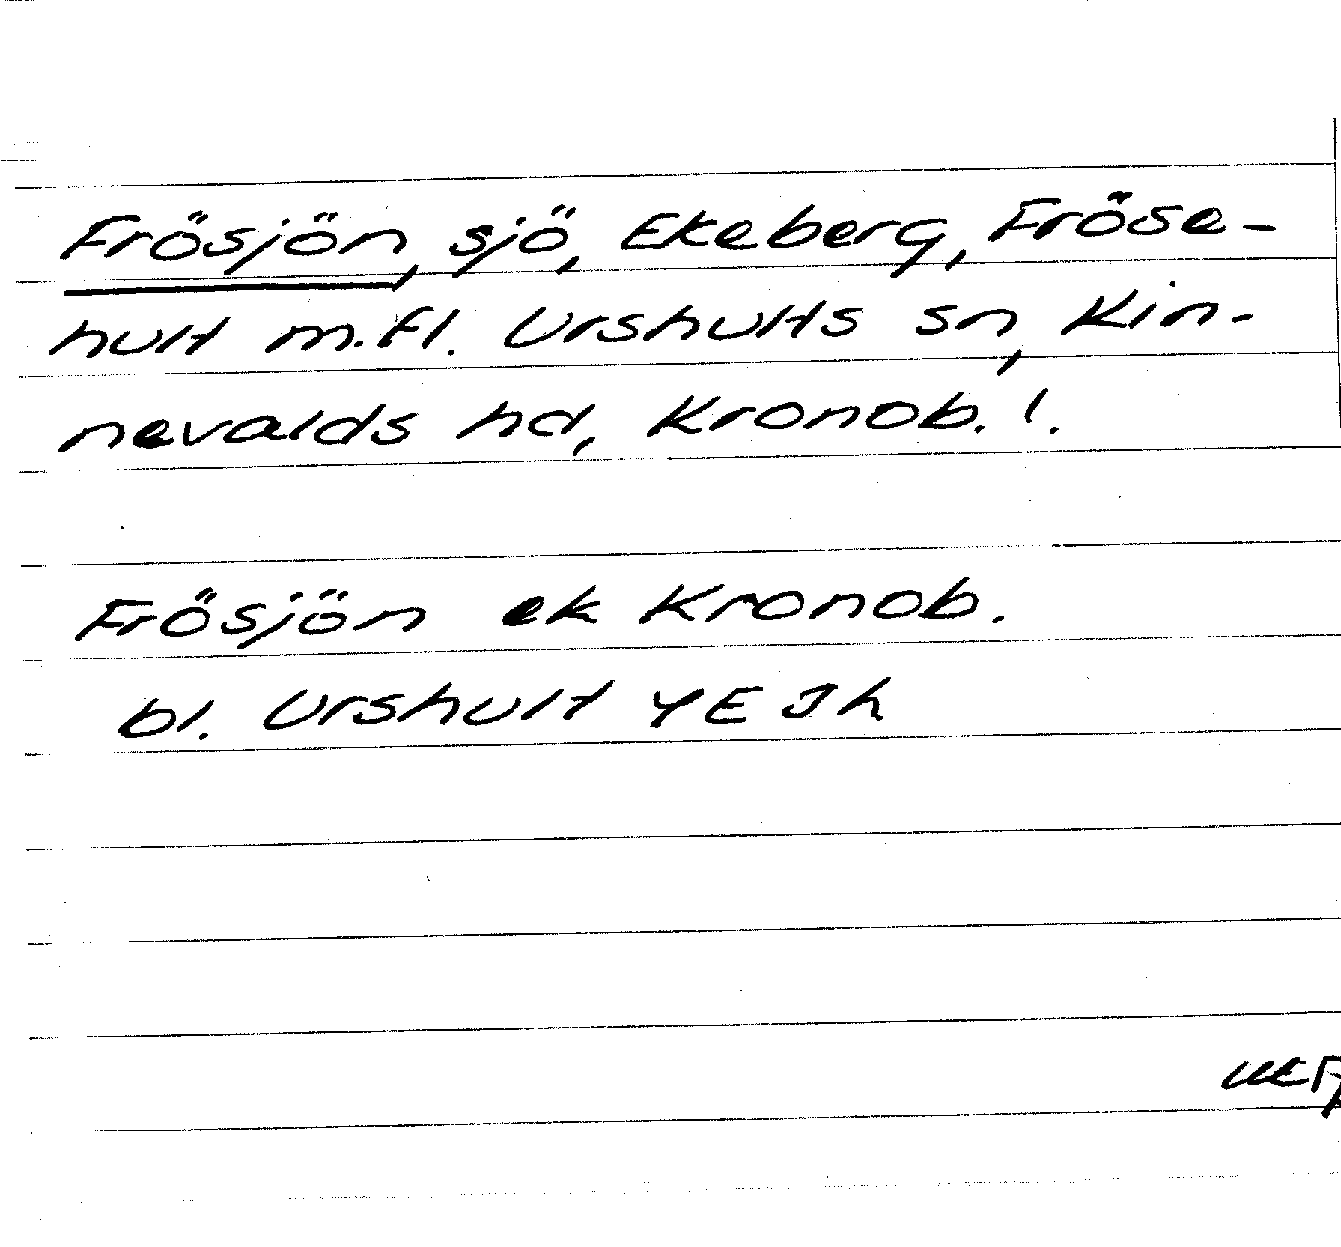 Frösjön, sjö, Ekeberg, Fröse-
hult m.fl. Urshults sn, Kin-
nevalds hd, Kronob. l.
Frösjön ek Kronob.
bl. Urshult 4E Jh